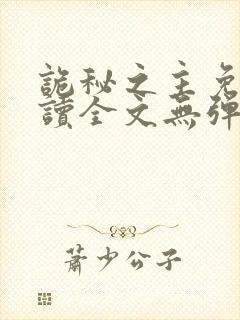 詭秘之主免
讀全文無彈
蕭少公子